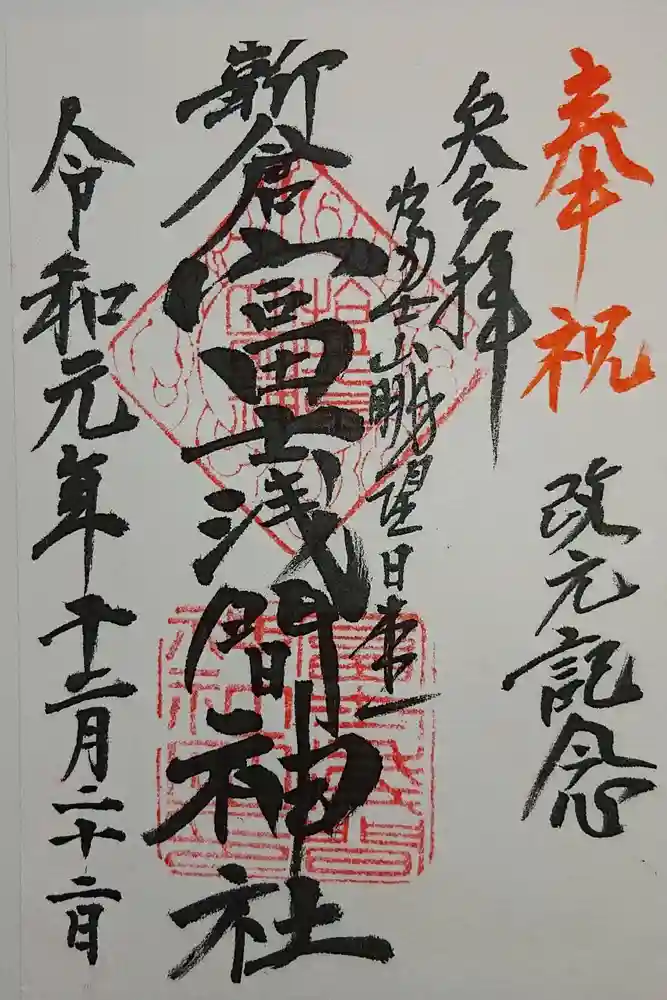 奉祝
改元記念
奥宮拝
富士山眺望日本一
新倉富士浅間神社
令和元年十二月二十二日